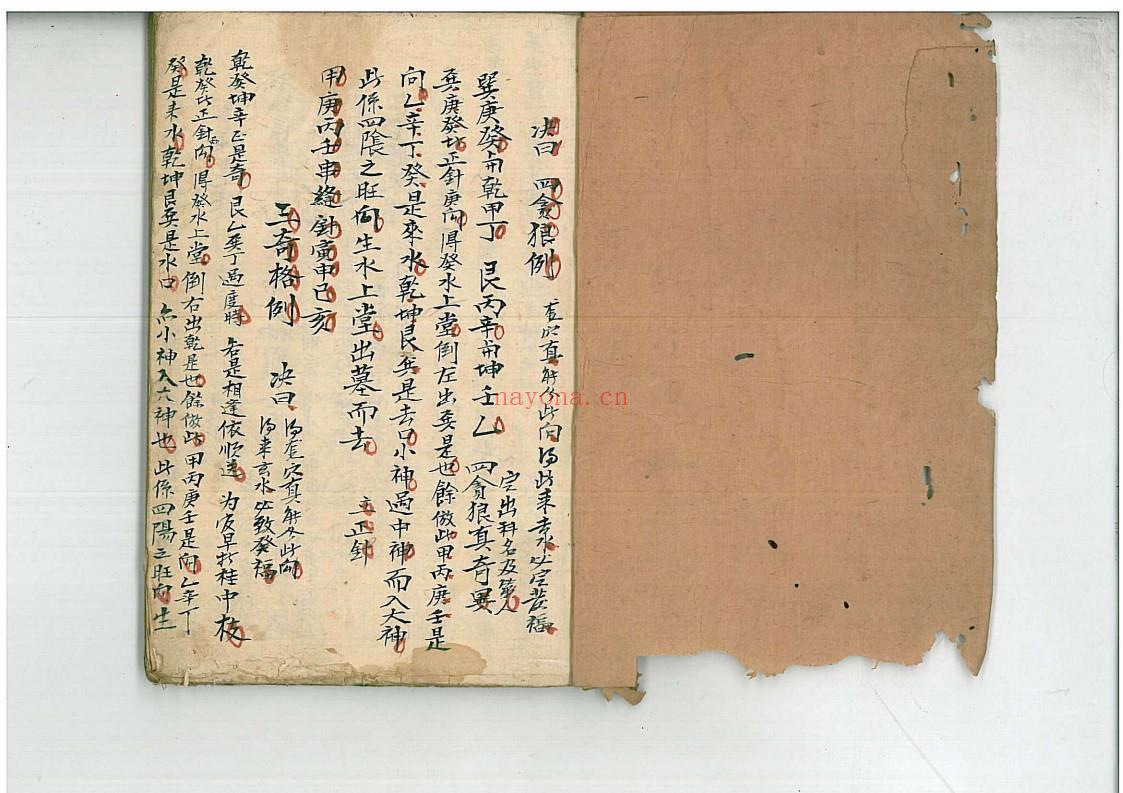 决曰 四貪狼例 查穴真 此向 得此來去水必定發福
巽庚癸 乾甲丁 艮丙辛 坤壬乙 四貪狼真奇異 定出科名及第人
巽庚癸 正針庚向 得癸水上堂倒左出巽是也餘倣此甲丙庚壬是
向乙辛丁癸是來水乾坤艮巽是去口小神過中神而入大神
此係四隂之旺向生水上堂出墓而去 立正針
用庚丙壬串縫針寅申巳亥
三奇格例 决曰 穴真 此向 得來去水必致發福
乾癸坤辛正是奇 艮乙巽丁過度時 若是相逢依順逆 为官早折桂中枝
乾癸 正針 向 得癸水上堂倒右出乾是也餘倣此甲丙庚壬是向乙辛丁
癸是來水乾坤艮巽是水口 小神入六神也 此係四陽之旺向生
nayona.cn